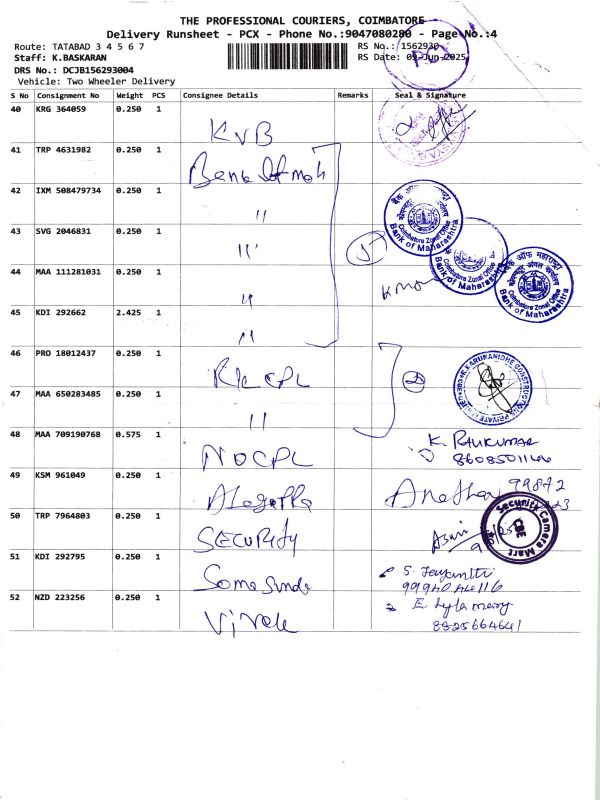 THE PROFESSIONAL COURIERS, COIMBATORE
Delivery Runsheet - PCX - Phone No.:9047080280 - Page No.:4
Route: TATABAD 3 4 5 6 7
RS No.: 1562930
Staff: K.BASKARAN
RS Date: 09-Jun-2025
DRS No.: DCJB156293004
Vehicle: Two Wheeler Delivery
S No Consignment No Weight PCS Consignee Details Remarks Seal & Signature
40 KRG 364059 0.250 1
KVB
41 TRP 4631982 0.250 1
Bank of mah
42 IXM 508479734 0.250 1
"
43 SVG 2046831 0.250 1
"
44 MAA 111281031 0.250 1
"
45 KDI 292662 2.425 1
"
बैंक ऑफ महाराष्ट्र
Coimbatore Zonal Office
Bank of Maharashtra
Coimbatore Zonal Office
Bank of Maharashtra
बैंक ऑफ महाराष्ट्र
Coimbatore Zonal Office
Bank of Maharashtra
46 PRO 18012437 0.250 1
47 MAA 650283485 0.250 1
"
48 MAA 709190768 0.575 1
NOCPL
K. RAJKUMAR
49 KSM 961049 0.250 1
Alagappa
50 TRP 7964803 0.250 1
SECURITY
Security Camera Mart
CBE
51 KDI 292795 0.250 1
Somasunda
S. Jayanthi
52 NZD 223256 0.250 1
Vivek
8925664641